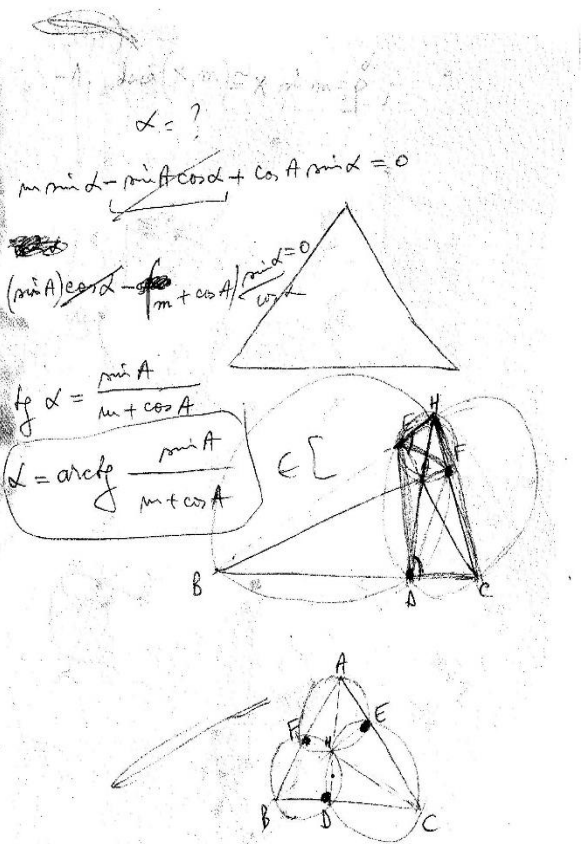 α = ?
m sin α - sin A cos α + cos A sin α = 0
(sin A) cos α - (m + cos A) sin α / cos α = 0
tg α = sin A / m + cos A
α = arctg sin A / m + cos A ∈ [
H
E
F
B
D
C
A
F
E
H
B
D
C